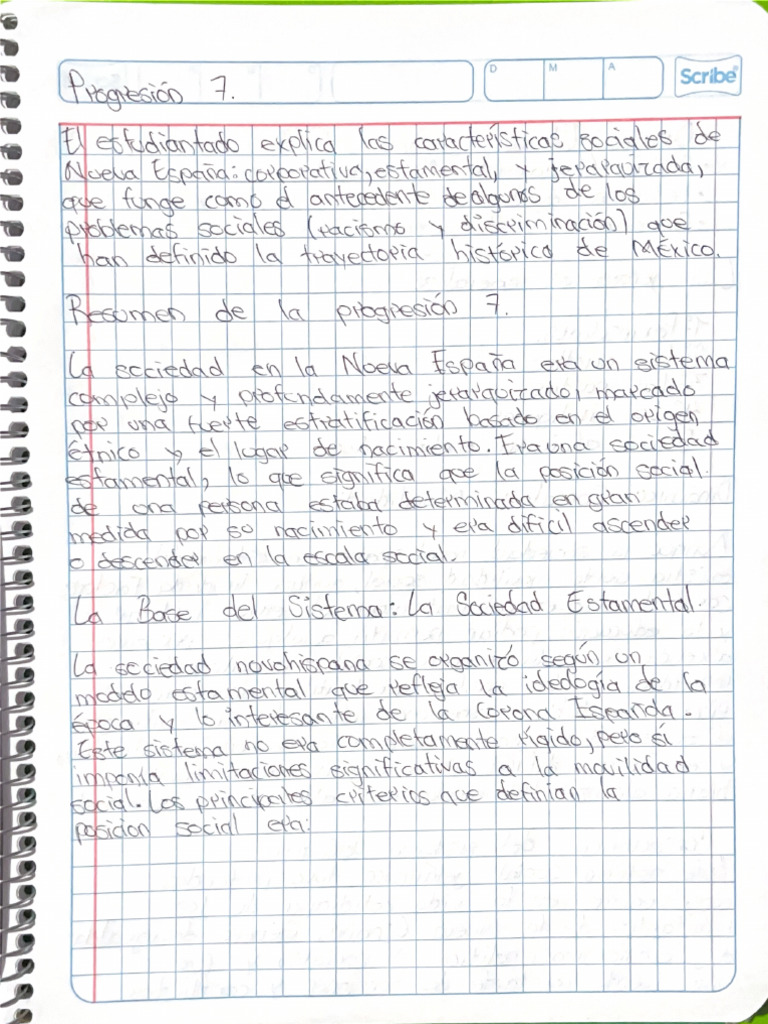 Progresión 7.
D M A
Scribe
El estudiantado explica las características sociales de
Nueva España: corporativa, estamental, y jerarquizada,
que funge como el antecedente de algunos de los
problemas sociales (racismo y discriminación) que
han definido la trayectoria histórica de México.
Resumen de la progresión 7.
La sociedad en la Nueva España era un sistema
complejo y profundamente jerarquizado, marcado
por una fuerte estratificación basado en el origen
étnico y el lugar de nacimiento. Era una sociedad
estamental, lo que significa que la posición social
de una persona estaba determinada en gran
medida por su nacimiento y era difícil ascender
o descender en la escala social.
La Base del Sistema: La Sociedad Estamental.
La sociedad novohispana se organizó según un
modelo estamental que refleja la ideología de la
época y lo interesante de la Corona Española.
Este sistema no era completamente rígido, pero si
imponia limitaciones significativas a la movilidad
social. Los principales criterios que definian la
posicion social era: